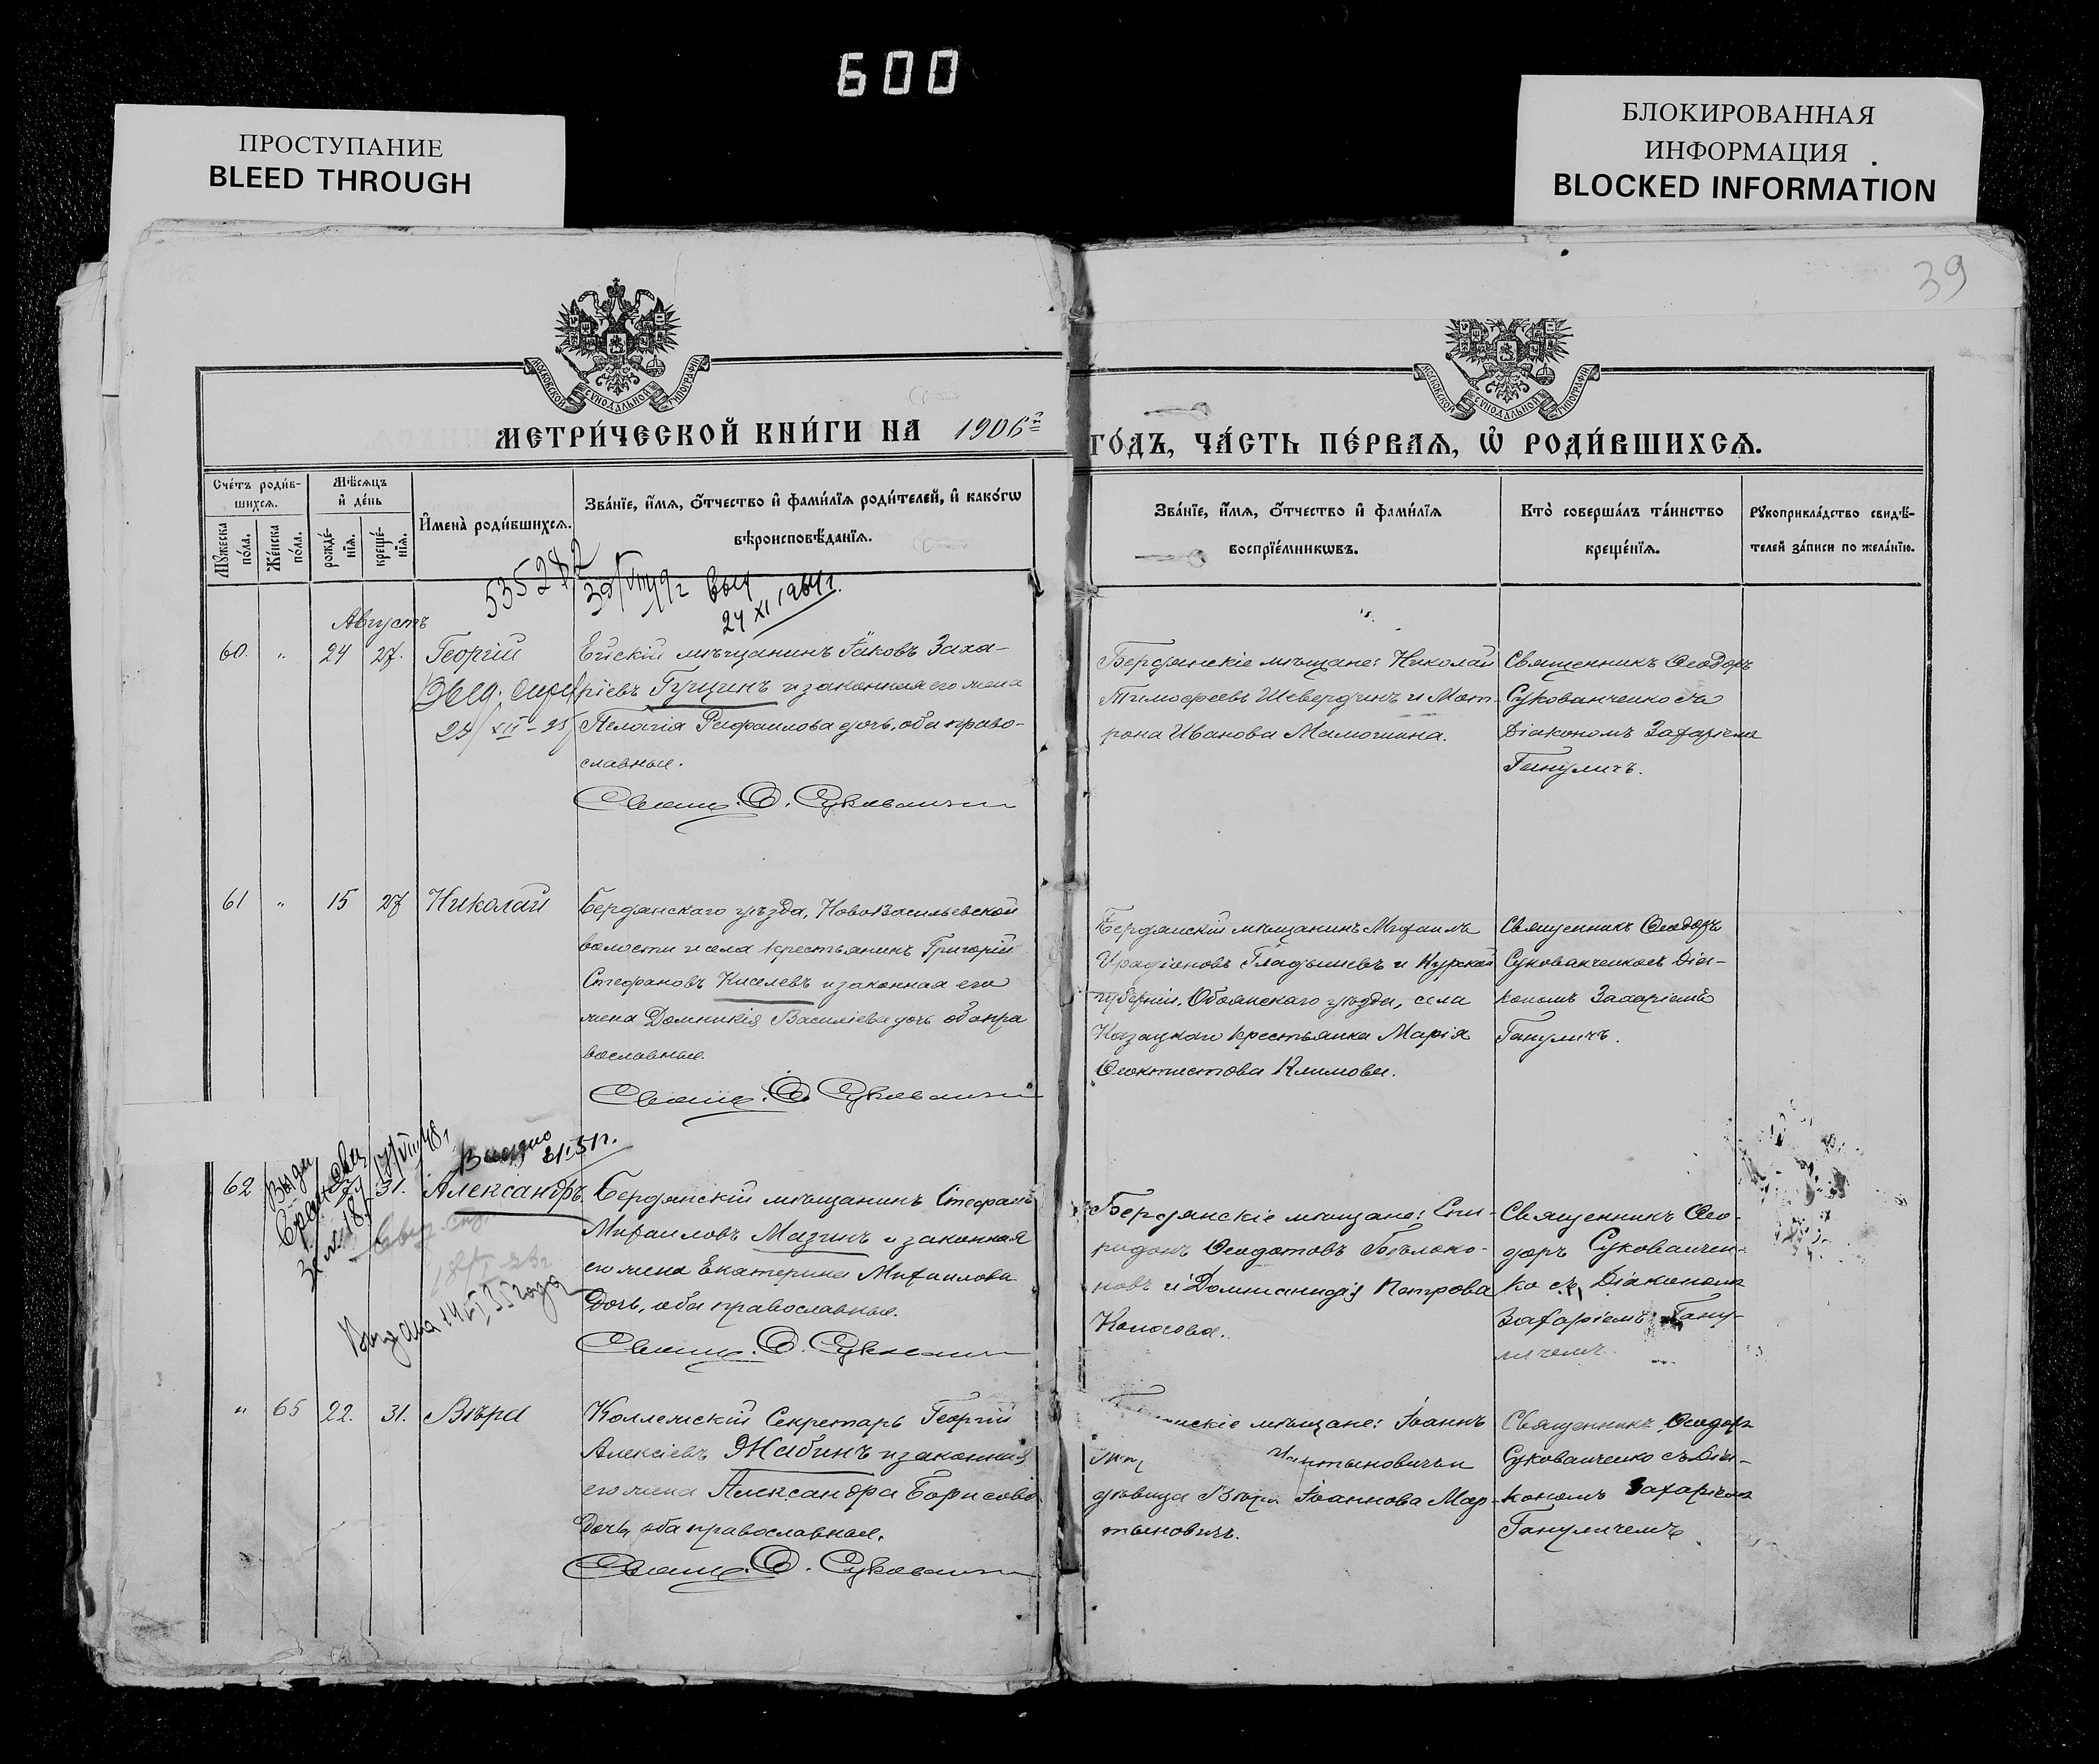 600
ПРОСТУПАНИЕ
BLEED THROUGH
БЛОКИРОВАННАЯ
ИНФОРМАЦИЯ
BLOCKED INFORMATION
39
МОСКОВСКОЙ СѴНОДАЛЬНОЙ ТИПОГРАФІИ
МОСКОВСКОЙ СѴНОДАЛЬНОЙ ТИПОГРАФІИ
МЕТРИ́ЧЕСКОЙ КНИ́ГИ НА 1906й
ГО́ДЪ, ЧА́СТЬ ПЕ́РВАѦ, Ѡ҆ РОДИ́ВШИХСѦ.
Счетъ роди́в-
шихсѧ.
Мꙋжеска
по́ла.
Же́нска
по́ла.
Мѣ́сѧцъ
и҆ де́нь
рожде́-
нїѧ.
креще́-
нїѧ.
И҆мена̀ роди́вшихсѧ.
Зва́нїе, и҆́мѧ, ѻ҆́тчество и҆ фами́лїѧ роди́телей, и҆ како́гѡ
вѣроисповѣ́данїѧ.
Зва́нїе, и҆́мѧ, ѻ҆́тчество и҆ фами́лїѧ
воспрїе́мникѡвъ.
Кто̀ соверша́лъ та́инство
креще́нїѧ.
Рꙋкоприкла́дство свидѣ́-
телей за́писи по жела́нїю.
24 XI 1964г.
Августъ
60. " 24 27. Георгій
Ейскій мѣщанинъ Іаковъ Заха-
ріевъ Гущинъ и законная его жена
Пелагія Рафаилова дочь, оба право-
славные.
Свящ. Ѳ. Сукованченко
Бердянскіе мѣщане: Николай
Тимоѳеевъ Шевердинъ и Мат-
рона Иванова Мамошина.
Священникъ Ѳеодоръ
Сукованченко съ
Діакономъ Захаріемъ
Гануличъ.
61 " 15 27 Николай
Бердянскаго уѣзда, НовоВасильевской
волости и села крестьянинъ Григорій
Стефановъ Киселевъ и законная его
жена Домникія Василіева дочь оба пра
вославные.
Свящ. Ѳ. Сукованченко
Бердянскій мѣщанинъ Михаилъ
Иродіоновъ Гладышевъ и Курской
губерніи, Обоянскаго уѣзда, села
Казацкаго крестьянка Марія
Ѳеоктистова Климова.
Священникъ Ѳеодоръ
Сукованченко съ Діа-
кономъ Захаріемъ
Гануличъ.
62 31. Александръ
Выдано
Бердянскій мѣщанинъ Стефанъ
Михаиловъ Мазинъ и законная
его жена Екатерина Михаилова
Дочь, оба православные.
Свящ. Ѳ. Сукованченко
Бердянскіе мѣщане: Спи-
ридонъ Ѳеодотовъ Бѣлоко-
новъ и Петрова
Колосова.
Священникъ Ѳео-
доръ Сукованчен-
ко съ Діакономъ
Захаріемъ Гану-
личемъ.
" 65 22. 31. Вѣра
Коллежскій Секретарь Георгій
Алексіевъ Жабинъ и законная
его жена Александра Борисова
Дочь, оба православные.
Свящ. Ѳ. Сукованченко
мѣщане: Іоаннъ
дѣвица Вѣра Іоаннова Мар-
тыновичъ.
Священникъ Ѳеодоръ
Сукованченко съ Діа-
кономъ Захаріемъ
Гануличемъ.